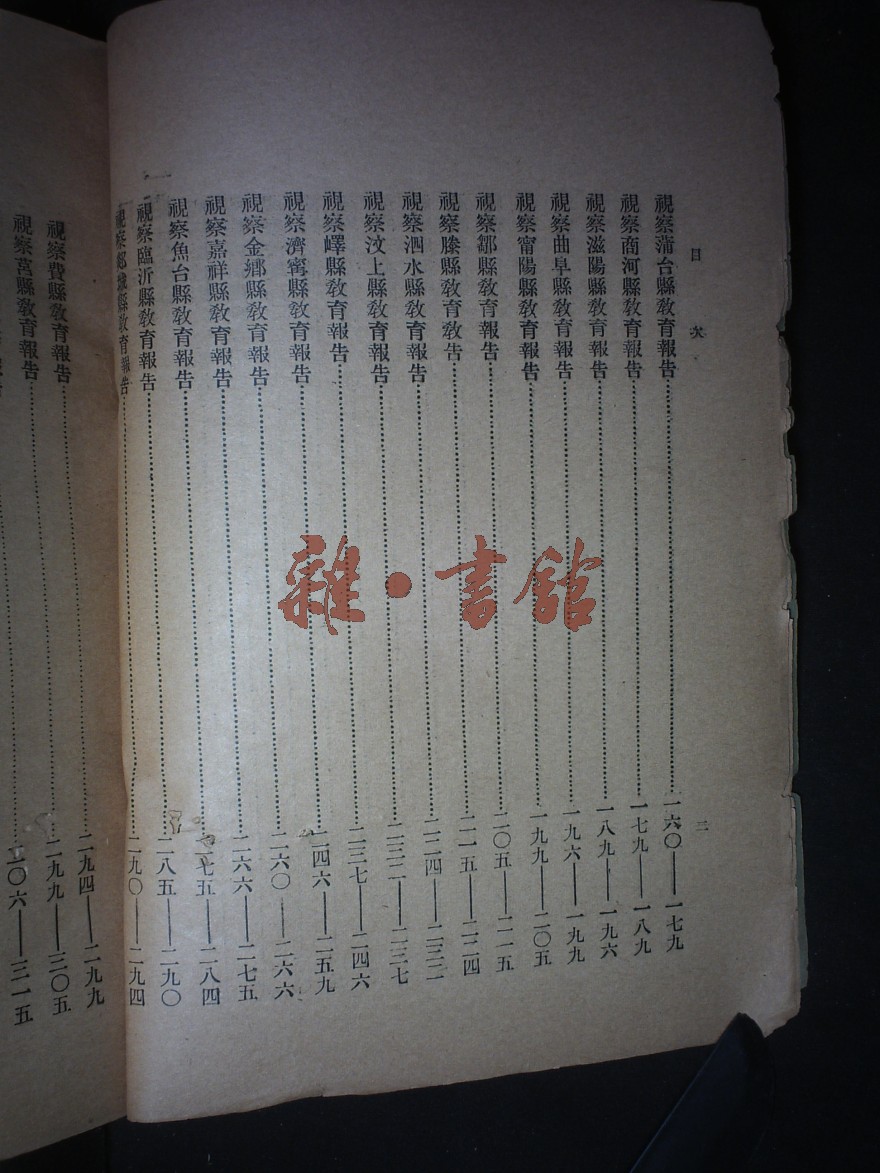 目次
三
視察蒲台縣敎育報告……一六〇——一七九
視察商河縣敎育報告……一七九——一八九
視察滋陽縣敎育報告……一八九——一九六
視察曲阜縣敎育報告……一九六——一九九
視察甯陽縣敎育報告……一九九——二〇五
視察鄒縣敎育報告……二〇五——二一五
視察滕縣敎育報告……二一五——二二四
視察泗水縣敎育報告……二二四——二三二
視察汶上縣敎育報告……二三二——二三七
視察嶧縣敎育報告……二三七——二四六
視察濟寧縣敎育報告……二四六——二五九
視察金鄉縣敎育報告……二六〇——二六六
視察嘉祥縣敎育報告……二六六——二七五
視察魚台縣敎育報告……二七五——二八四
視察臨沂縣敎育報告……二八五——二九〇
視察郯城縣敎育報告……二九〇——二九四
視察費縣敎育報告……二九四——二九九
視察莒縣敎育報告……二九九——三〇五
告……〇六——三一五
雜·書館